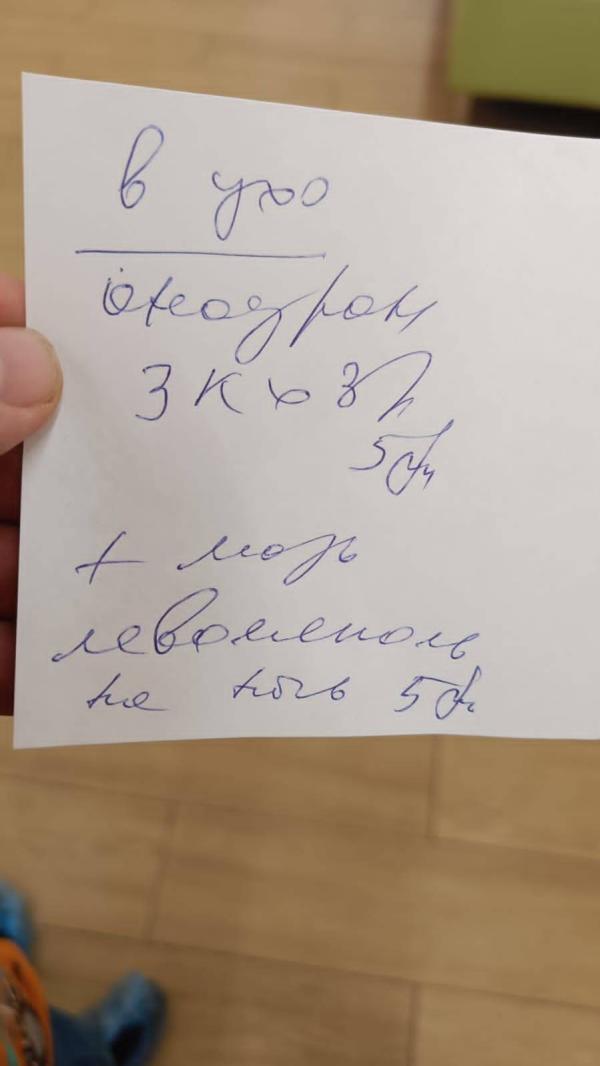 в ухо
анауран
3 к х 3 р
5 дн
+ мазь
левомеколь
на ночь 5 дн